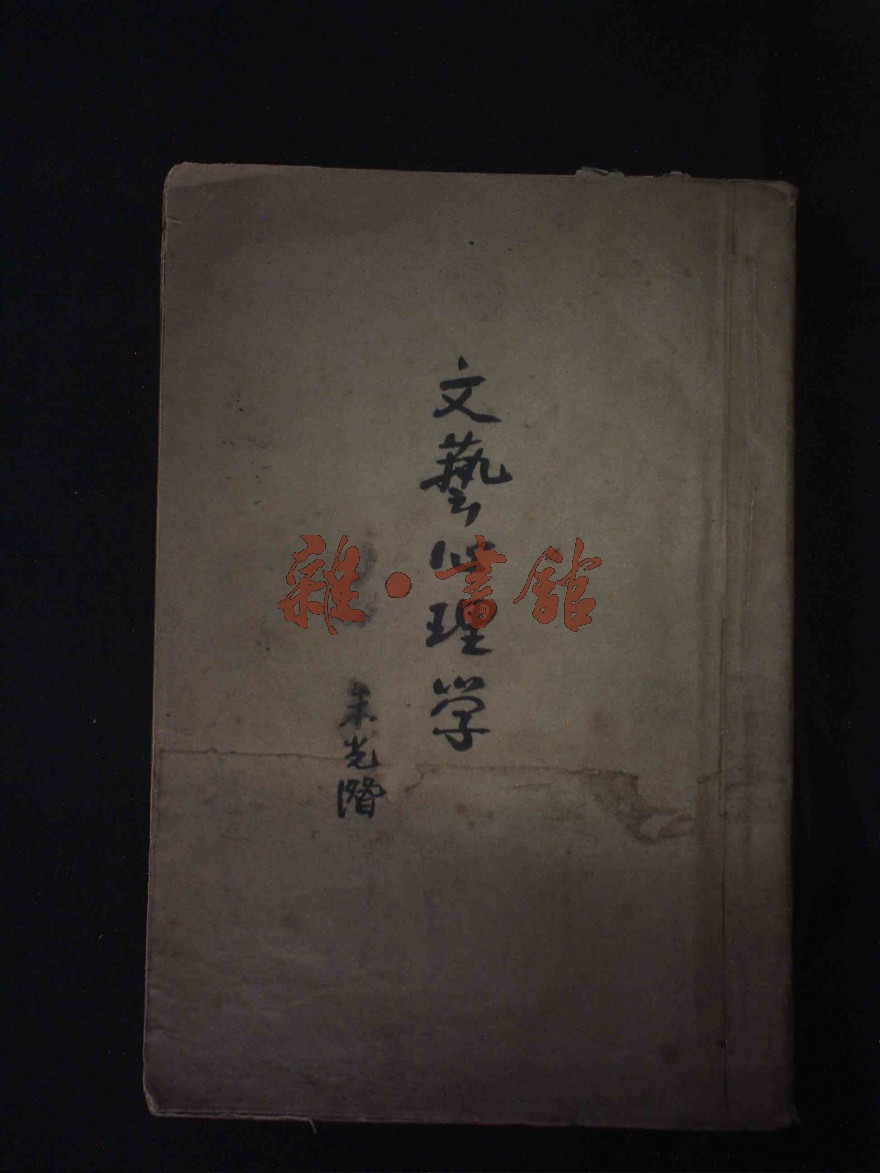 文藝心理学
朱光潛
雜·書館